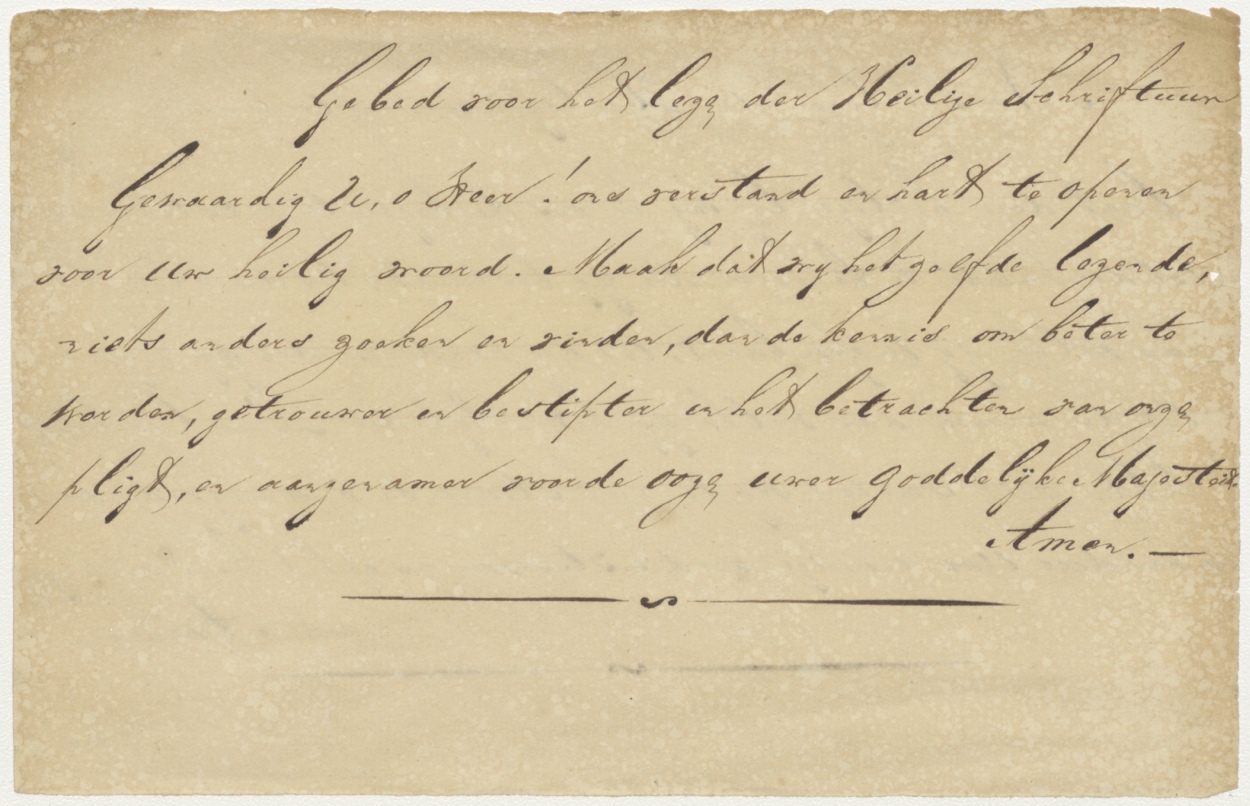 Gebed voor het leze der Heilige Schriftuur
Gewaardig U, o Heer! ons verstand en hart te openen
voor uw heilig woord. Maak dat wy het zelfde lezende,
niets anders zoeken en vinden, dan de kennis om beter te
worden, getrouwer en bestipter in het betrachten van onze
pligt, en aangenamer voor de ooge uwer goddelijke Majesteit.
Amen. —